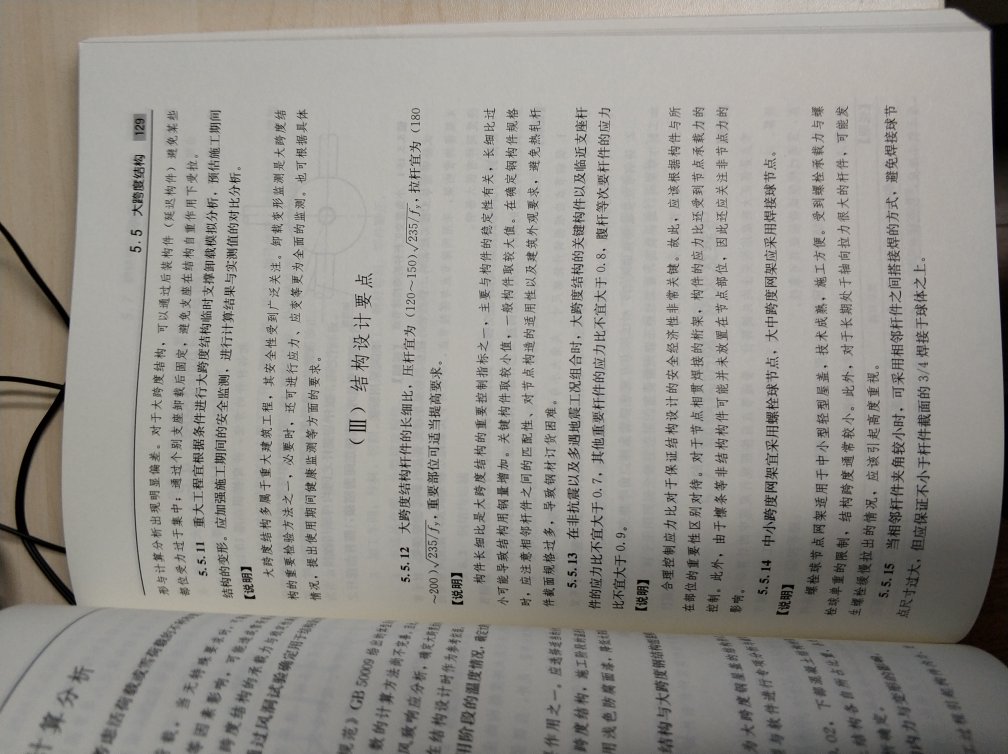 5.5 大跨度结构 129
形与计算分析出现明显偏差。对于大跨度结构，可以通过后装构件（延迟构件）避免某些
部位受力过于集中；通过个别支座卸载后固定，避免支座在结构自重作用下受拉。
5.5.11 重大工程宜根据条件进行大跨度结构临时支撑卸载模拟分析，预估施工期间
结构的变形。应加强施工期间的安全监测，进行计算结果与实测值的对比分析。
【说明】
大跨度结构多属于重大建筑工程，其安全性受到广泛关注。卸载变形监测是大跨度结
构的重要检验方法之一，必要时，还可进行应力、应变等更为全面的监测。也可根据具体
情况，提出使用期间健康监测等方面的要求。
（Ⅲ）结构设计要点
5.5.12 大跨度结构杆件的长细比，压杆宜为（120～150）√235/fy，拉杆宜为（180
～200）√235/fy，重要部位可适当提高要求。
【说明】
构件长细比是大跨度结构的重要控制指标之一，主要与构件的稳定性有关，长细比过
小可能导致结构用钢量增加。关键构件取较小值，一般构件取较大值。在确定钢构件规格
时，应注意相邻杆件之间的匹配性、对节点构造的适用性以及建筑外观要求，避免热轧杆
件截面规格过多，导致钢材订货困难。
5.5.13 在非抗震以及多遇地震工况组合时，大跨度结构的关键构件以及临近支座杆
件的应力比不宜大于 0.7，其他重要杆件的应力比不宜大于 0.8，腹杆等次要杆件的应力
比不宜大于 0.9。
【说明】
合理控制应力比对于保证结构设计的安全经济性非常关键。故此，应该根据构件与所
在部位的重要性区别对待。对于节点相贯焊接的桁架，构件的应力比还受到节点承载力的
控制。此外，由于檩条等非结构构件可能并未放置在节点部位，因此还应关注非节点力的
影响。
5.5.14 中小跨度网架宜采用螺栓球节点，大中跨度网架应采用焊接球节点。
【说明】
螺栓球节点网架适用于中小型轻型屋盖，技术成熟，施工方便。受到螺栓承载力与螺
栓球单重的限制，结构跨度通常较小。此外，对于长期处于轴向拉力很大的杆件，可能发
生螺栓缓慢拉出的情况，应该引起高度重视。
5.5.15 当相邻杆件夹角较小时，可采用相邻杆件之间搭接焊的方式，避免焊接球节
点尺寸过大，但应保证不小于杆件截面的 3/4 焊接于球体之上。
计算分析